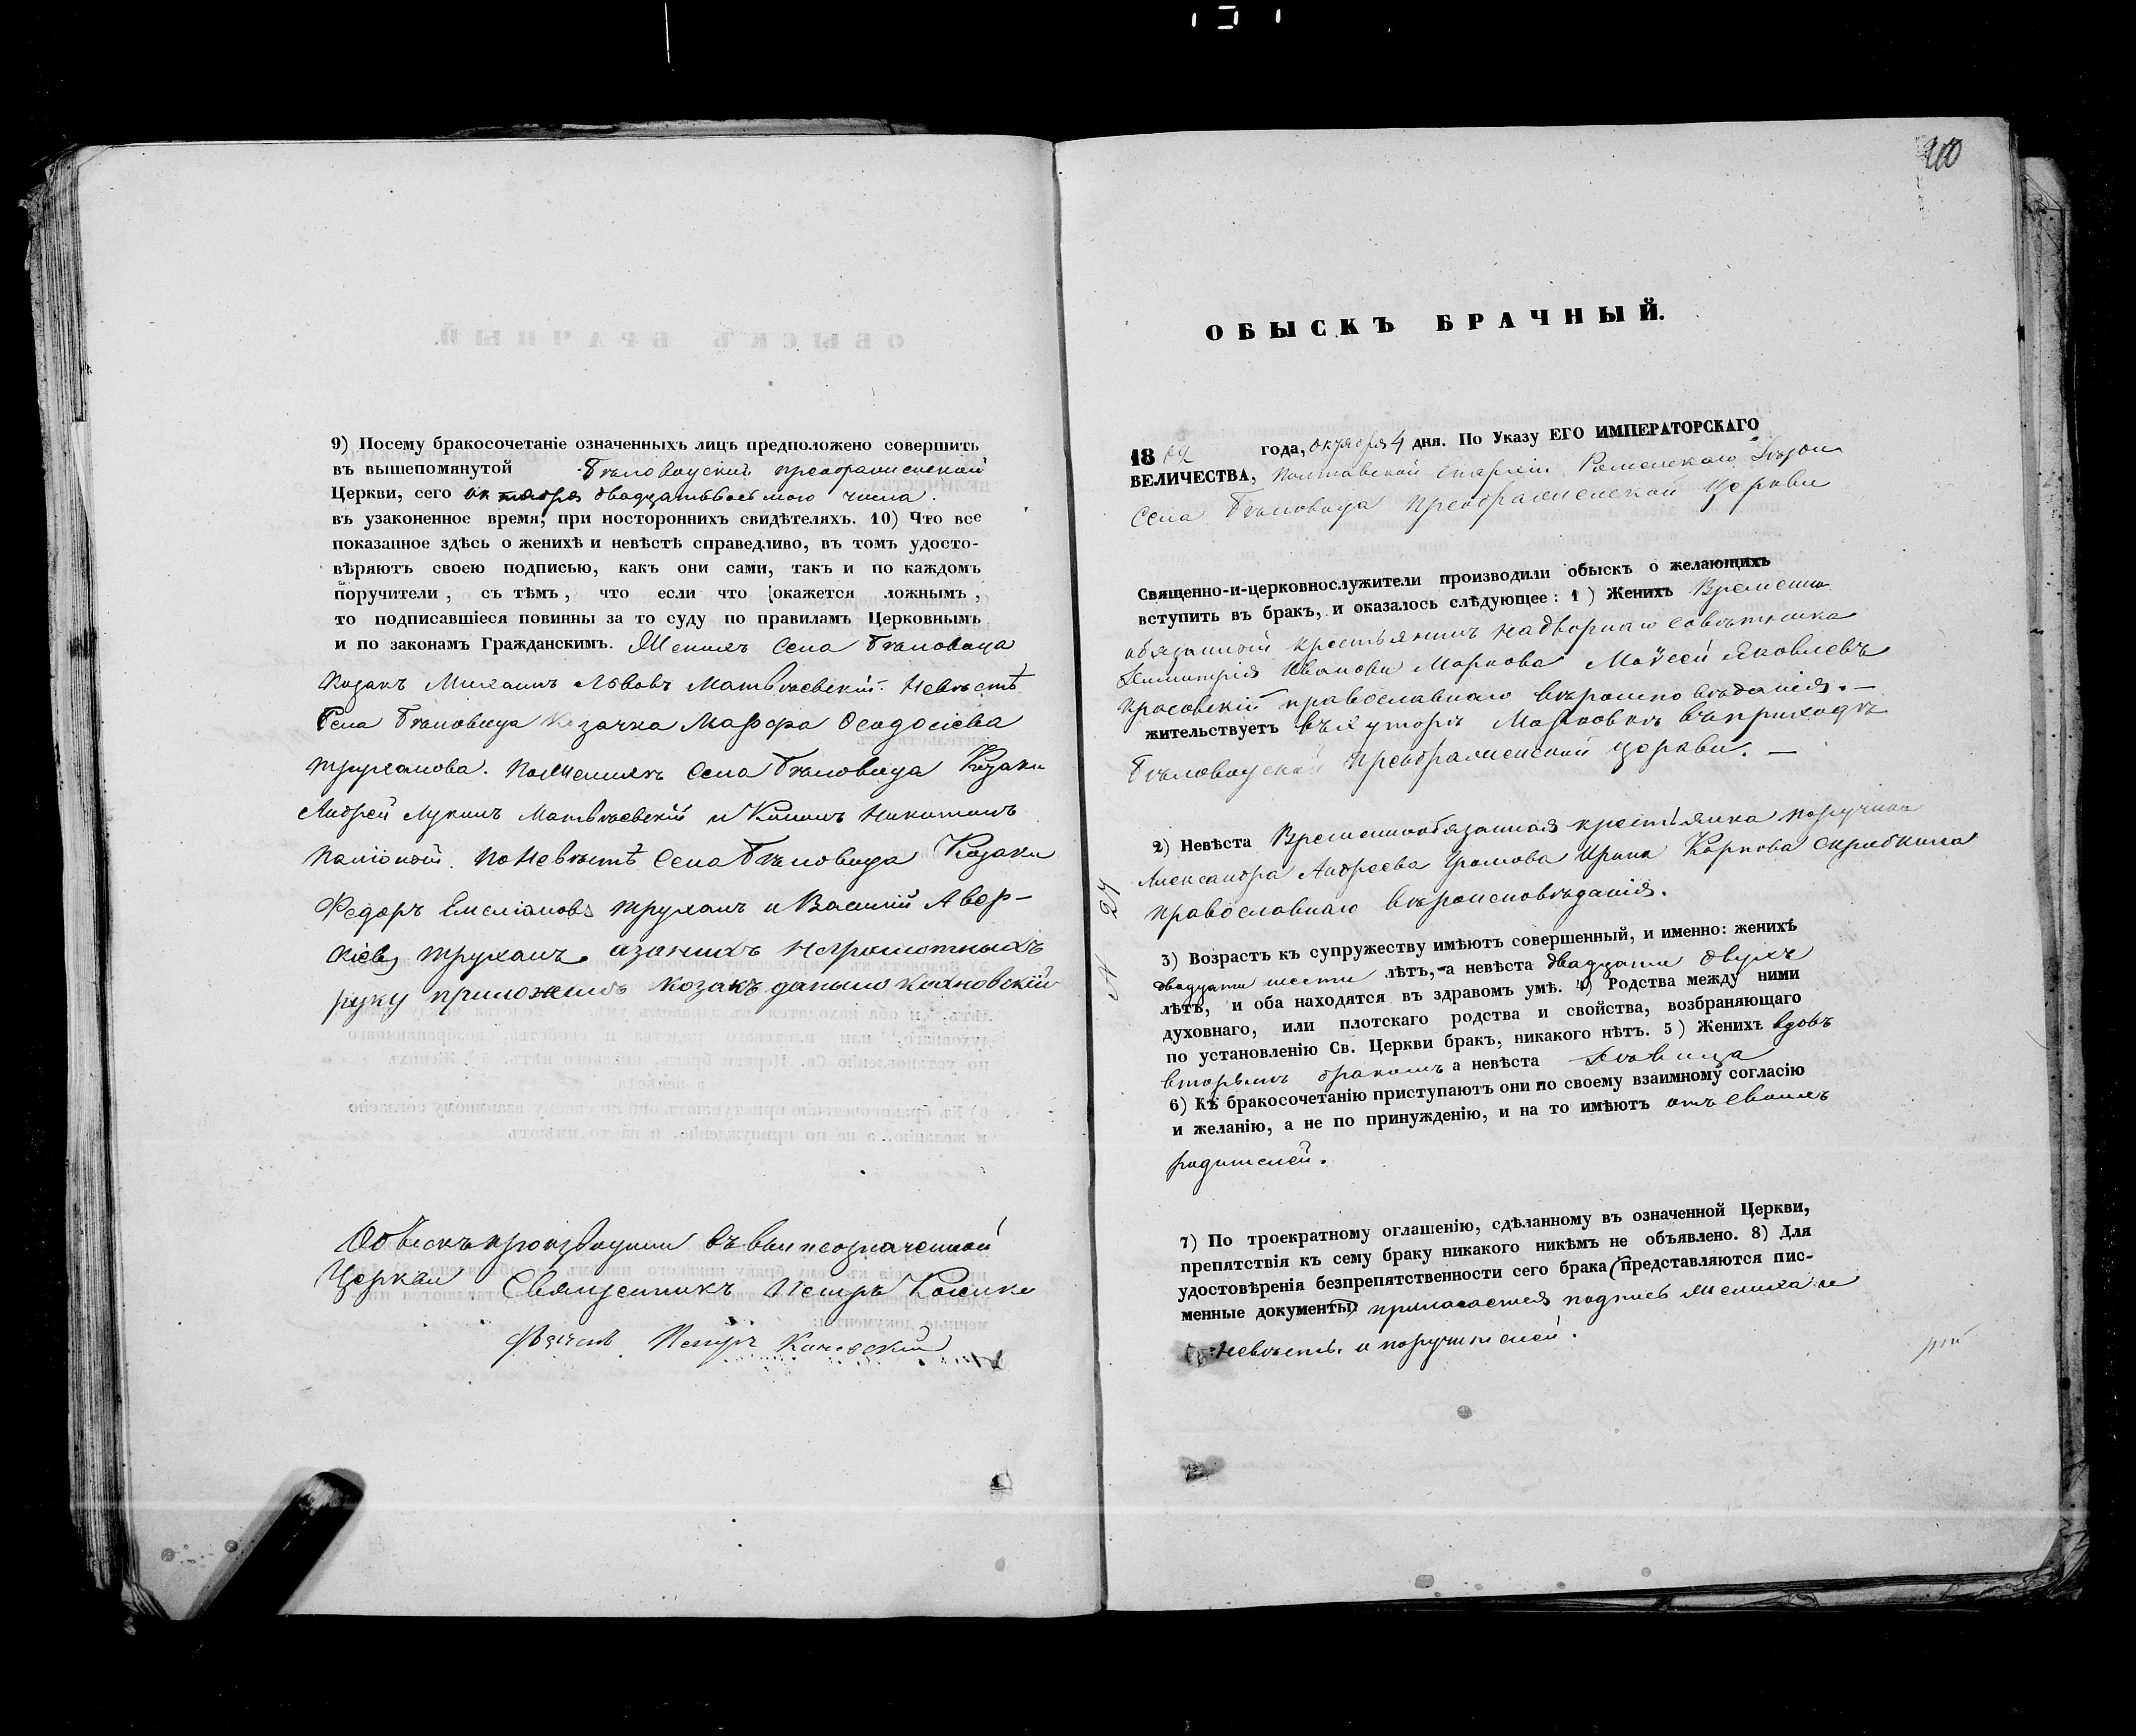 9) Посему бракосочетаніе означенныхъ лицъ предположено совершить
въ вышепомянутой Бѣловодскій преображенской
Церкви, сего октября двадцатьвосьмого числа.
въ узаконенное время, при постороннихъ свидѣтеляхъ. 10) Что все
показанное здѣсь о женихѣ и невѣстѣ справедливо, въ томъ удосто-
вѣряютъ своею подписью, какъ они сами, такъ и по каждомъ
поручители, съ тѣмъ, что если что окажется ложнымъ,
то подписавшіеся повинны за то суду по правиламъ Церковнымъ
и по законамъ Гражданскимъ. Женихъ Села Бѣловода
Козакъ Михаилъ Львовъ Матвѣевскій. Невѣстѣ
Села Бѣловода Козачка Мафра Феодосіева
Труханова. По женихѣ Села Бѣловода Козаки
Андрей Лукинъ Матвѣевскій и Климъ Никитинъ
По Невѣстѣ Села Бѣловода Козаки
Федоръ Емеліановъ Труханъ и Василій Авер-
кіевъ Труханъ. а за нихъ неграмотныхъ
руку приложилъ козакъ данило
Обыскъ производили въ вышеозначенной
Церкви Священникъ Петръ
Петръ
210
ОБЫСКЪ БРАЧНЫЙ.
18 64 года, октября 4 дня. По Указу ЕГО ИМПЕРАТОРСКАГО
ВЕЛИЧЕСТВА, Полтавской епархіи Роменскаго уѣзда
Села Бѣловода преображенской Церкви
Священно-и-церковнослужители производили обыскъ о желающихъ
вступить въ бракъ, и оказалось слѣдующее: 1) Женихъ Временно
обязанный крестьянинъ надворнаго совѣтника
Димитрія Иванова Маркова Моѵсей Яковлевъ
Красовскій православнаго вѣроисповѣданія. —
жительствуетъ въ хуторѣ Марковкѣ въ приходѣ
Бѣловодской преображенской церкви. —
2) Невѣста Временнообязанная крестьянка поручика
Александра Андреева Громова Ирина Карпова Скрибкина
православнаго вѣроисповѣданія.
№ 27
3) Возрастъ къ супружеству имѣютъ совершенный, и именно: женихъ
двадцати шести лѣтъ, а невѣста двадцати двухъ
лѣтъ, и оба находятся въ здравомъ умѣ. 4) Родства между ними
духовнаго, или плотскаго родства и свойства, возбраняющаго
по установленію Св. Церкви бракъ, никакого нѣтъ. 5) Женихъ вдовъ
вторымъ бракомъ а невѣста дѣвица
6) Къ бракосочетанію приступаютъ они по своему взаимному согласію
и желанію, а не по принужденію, и на то имѣютъ отъ своихъ
родителей.
7) По троекратному оглашенію, сдѣланному въ означенной Церкви,
препятствія къ сему браку никакого никѣмъ не объявлено. 8) Для
удостовѣренія безпрепятственности сего брака (представляются пис-
менные документы) прилагается подпись жениха и
невѣсты и поручителей.